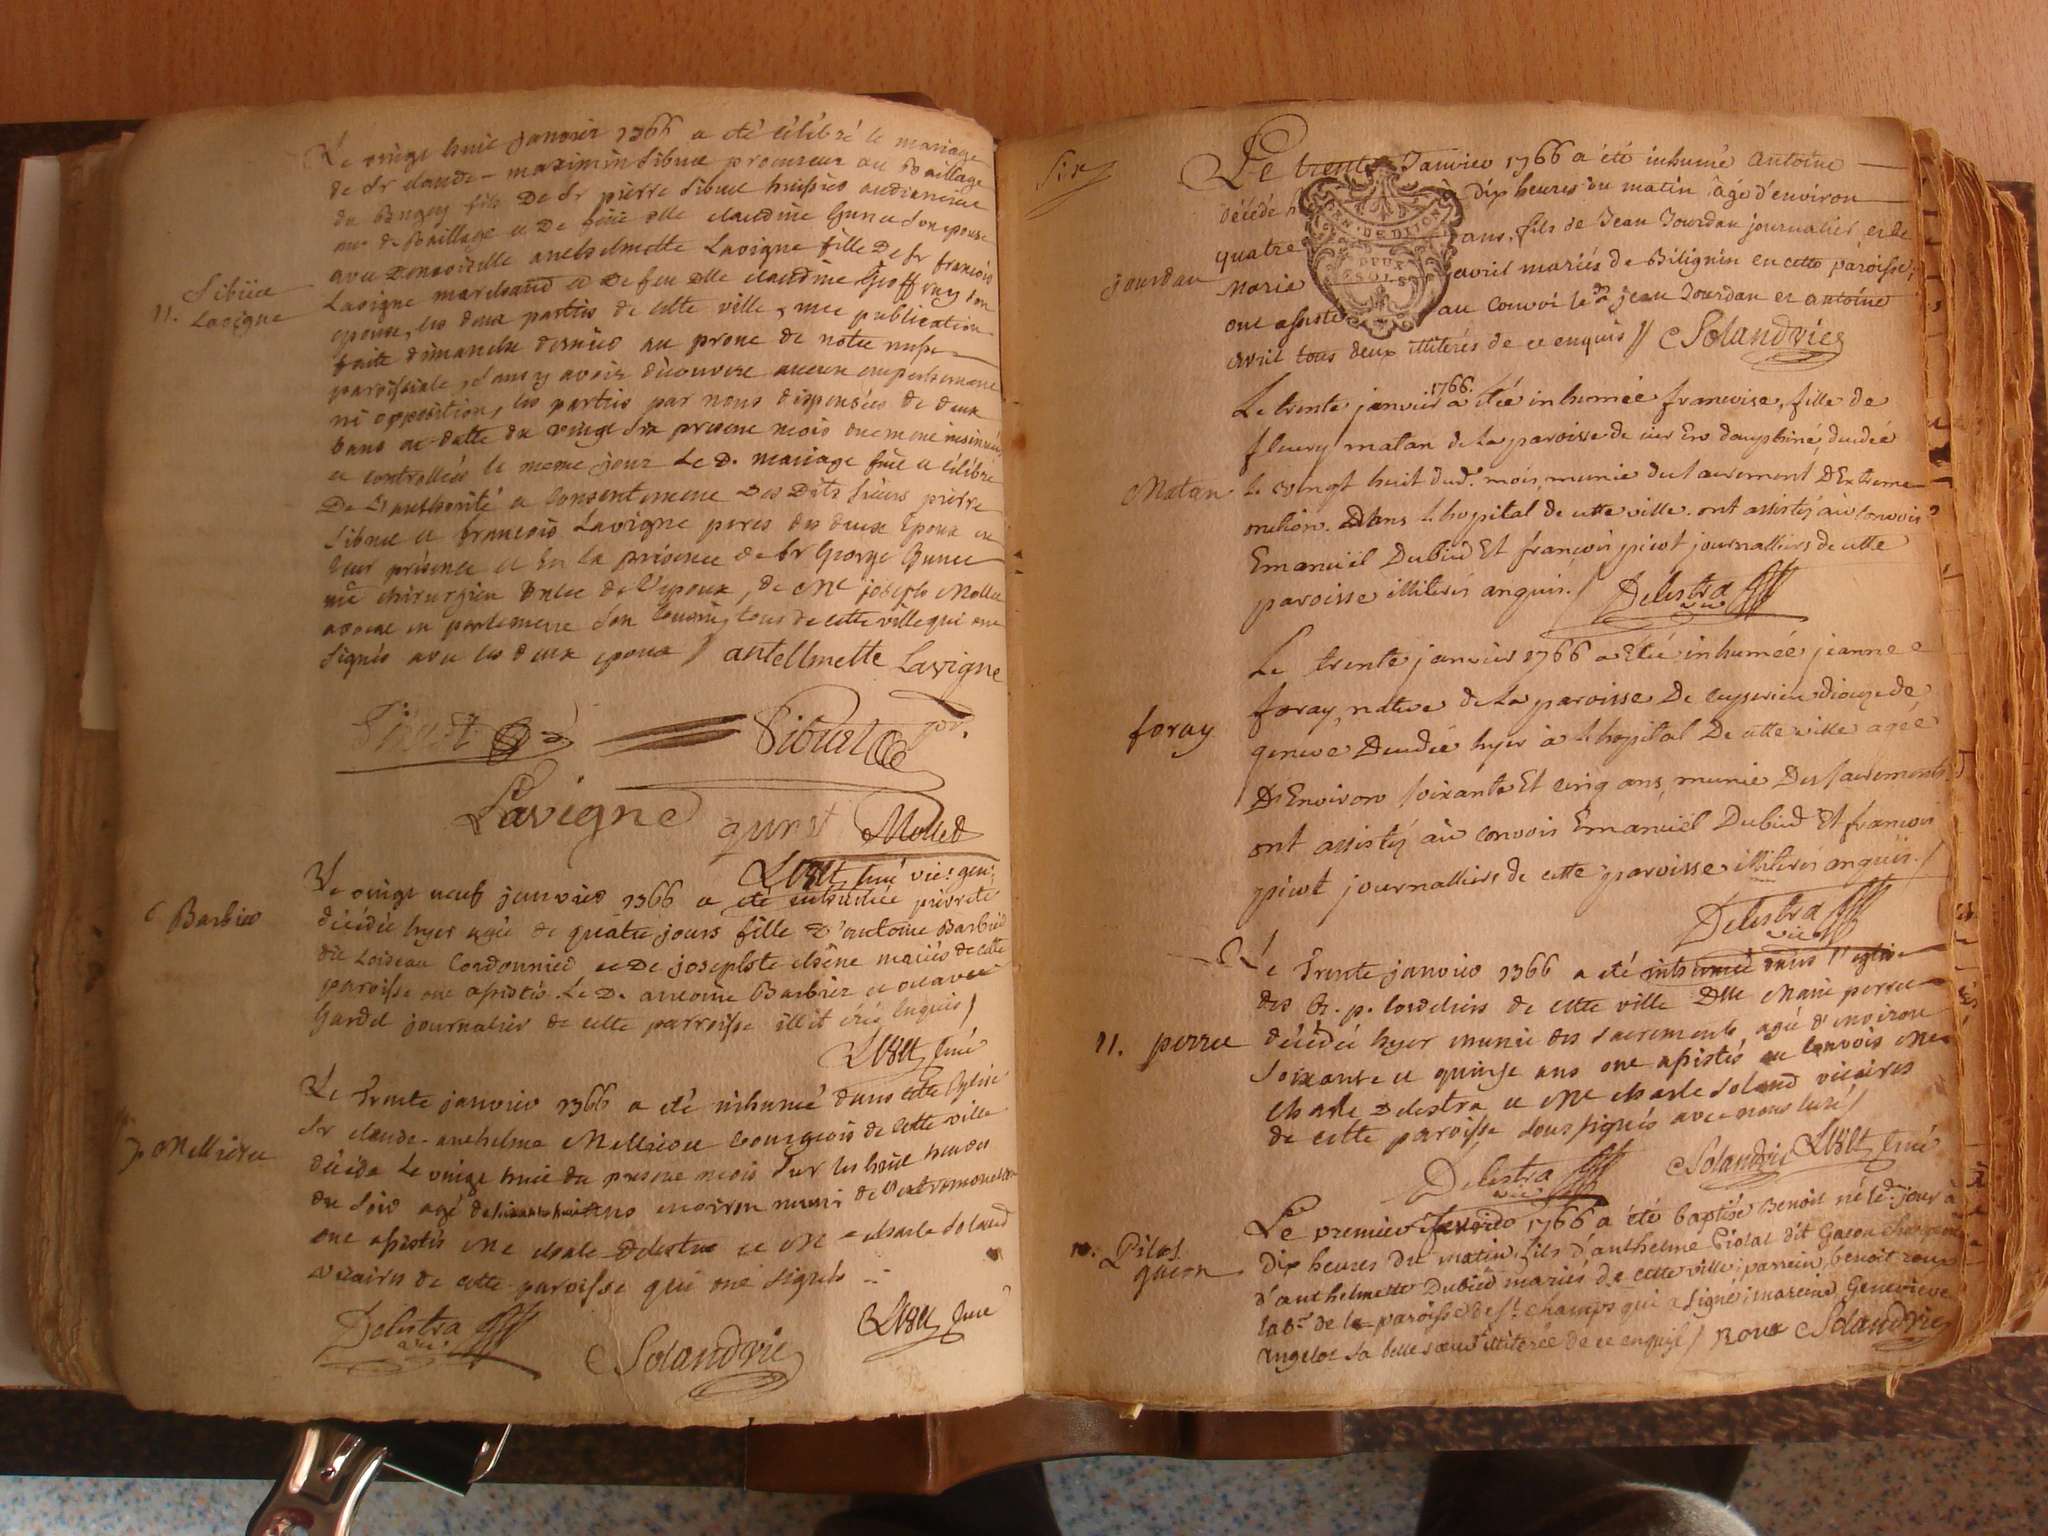 Le vingt huit janvier 1766 a été célébré le mariage
de Sr claude-maximin Sibuet procureur au Baillage
du Bugey fils De Sr pierre Sibuet huissier audiencier
au de Baillage et De feue dlle claudine Gunet Son epouse
avec Demoiselle anthelmette Lavigne fille De Sr francois
Sibuet
11. Lavigne
Lavigne marchand et De feu Dlle claudine Geoffray son
epouse, les deux parties de cette ville, une publication
faite dimanche dernier au prone de notre messe
paroissiale, sans y avoir découvert aucun empechement
ni opposition, les parties par nous dispensées de deux
bans en datte du vingt six present mois duement insinuées
et controllées le meme jour Le D. mariage fait et célébré
De L'authorité et consentement Des Dits Sieurs pierre
Sibuet et francois Lavigne peres des deux Epoux en
leur présence et En la présence de Sr George Gunet
me chirurgien oncle de l'epoux, de Me joseph Mollet
avocat en parlement Son Cousin, tous de cette ville qui ont
signés avec les deux epoux / antellmette Lavigne
Sibuet
Sibuet
Lavigne gunet Mollet
curé vic. gen.
6 Barbier
Le vingt neuf janvier 1766 a été inhumée pierrete
décédée hyer agée de quatre jours fille d'antoine Barbier
dit Loiseau Cordonnier et De josephte chêne mariés de cette
paroisse ont assistés Le D. antoine Barbier et
Gardel journalier de cette parroisse illitérés Enquis /
curé
7 Mellieret
Le Trente janvier 1766 a été inhumé dans cette Eglise
Sr claude-anthelme Mellieret bourgeois de cette ville
décédé Le vingt huit du present mois sur les huit heures
du Soir agé de ans environ muni de l'extremonction
ont assistés Me charle Delestra et Me charle Soland
vicaires de cette paroisse qui ont signés
Delestra vic.
Soland vic
curé
Six
Le trente Janvier 1766 a été inhumé antoine
décédé à dix heures du matin âgé d'environ
quatre ans, fils de Jean Jourdan journalier, et de
jourdan
marie avril mariés de Bilignin en cette paroisse;
ont assisté au convoi le dt jean Jourdan et antoine
avril tous deux illiterés de ce enquis // Soland vic
GEN. DE DIJON
DEUX
SOLS
1766.
Le trente janvier a étée inhumée francoise, fille de
fleury matan de la paroisse de en dauphiné, decedée
Matan
le vingt huit dud. mois, munie du sacrement D'Extreme
onction. Dans l'hopital de cette ville. ont assistés au convois
Emanuël Dubied Et francois picot journalliers de cette
paroisse illiterés anquis. / Delestra
vic
foray
Le trente janvier 1766 a étée inhumée jeanne
foray, native de La paroisse De Ceyserieu diocese de
geneve Decedée hyer à l'hopital De cette ville agée
D'Environ soixante Et cinq ans, munie Des sacrements
ont assistés au convois Emanuël Dubied Et francois
picot journalliers de cette paroisse illiterés anquis. /
Delestra
vic
Le Trente janvier 1766 a été inhumée dans l'eglise
des R. p. Cordeliers de cette ville Dlle Marie perret
11. perret
décédée hyer munie des sacrements agée d'environ
soixante et quinze ans ont assistés au Convois Me
charle Delestra et Me charle Soland vicaires
de cette paroisse soussignés avec nous curé /
Delestra
vic
Soland vic curé
Le premier fevrier 1766 a été baptisé Benoit né le dt jour à
10. Pilat
gacon
dix heures du matin, fils d'anthelme Pilat dit Gacon et
d'anthelmette Dubied mariés de cette ville; parrein, benoit roux
de la paroisse de St champs qui a signé; mareine, Genevieve
angelot sa belle soeur illiterée de ce enquise / Roux Soland vic